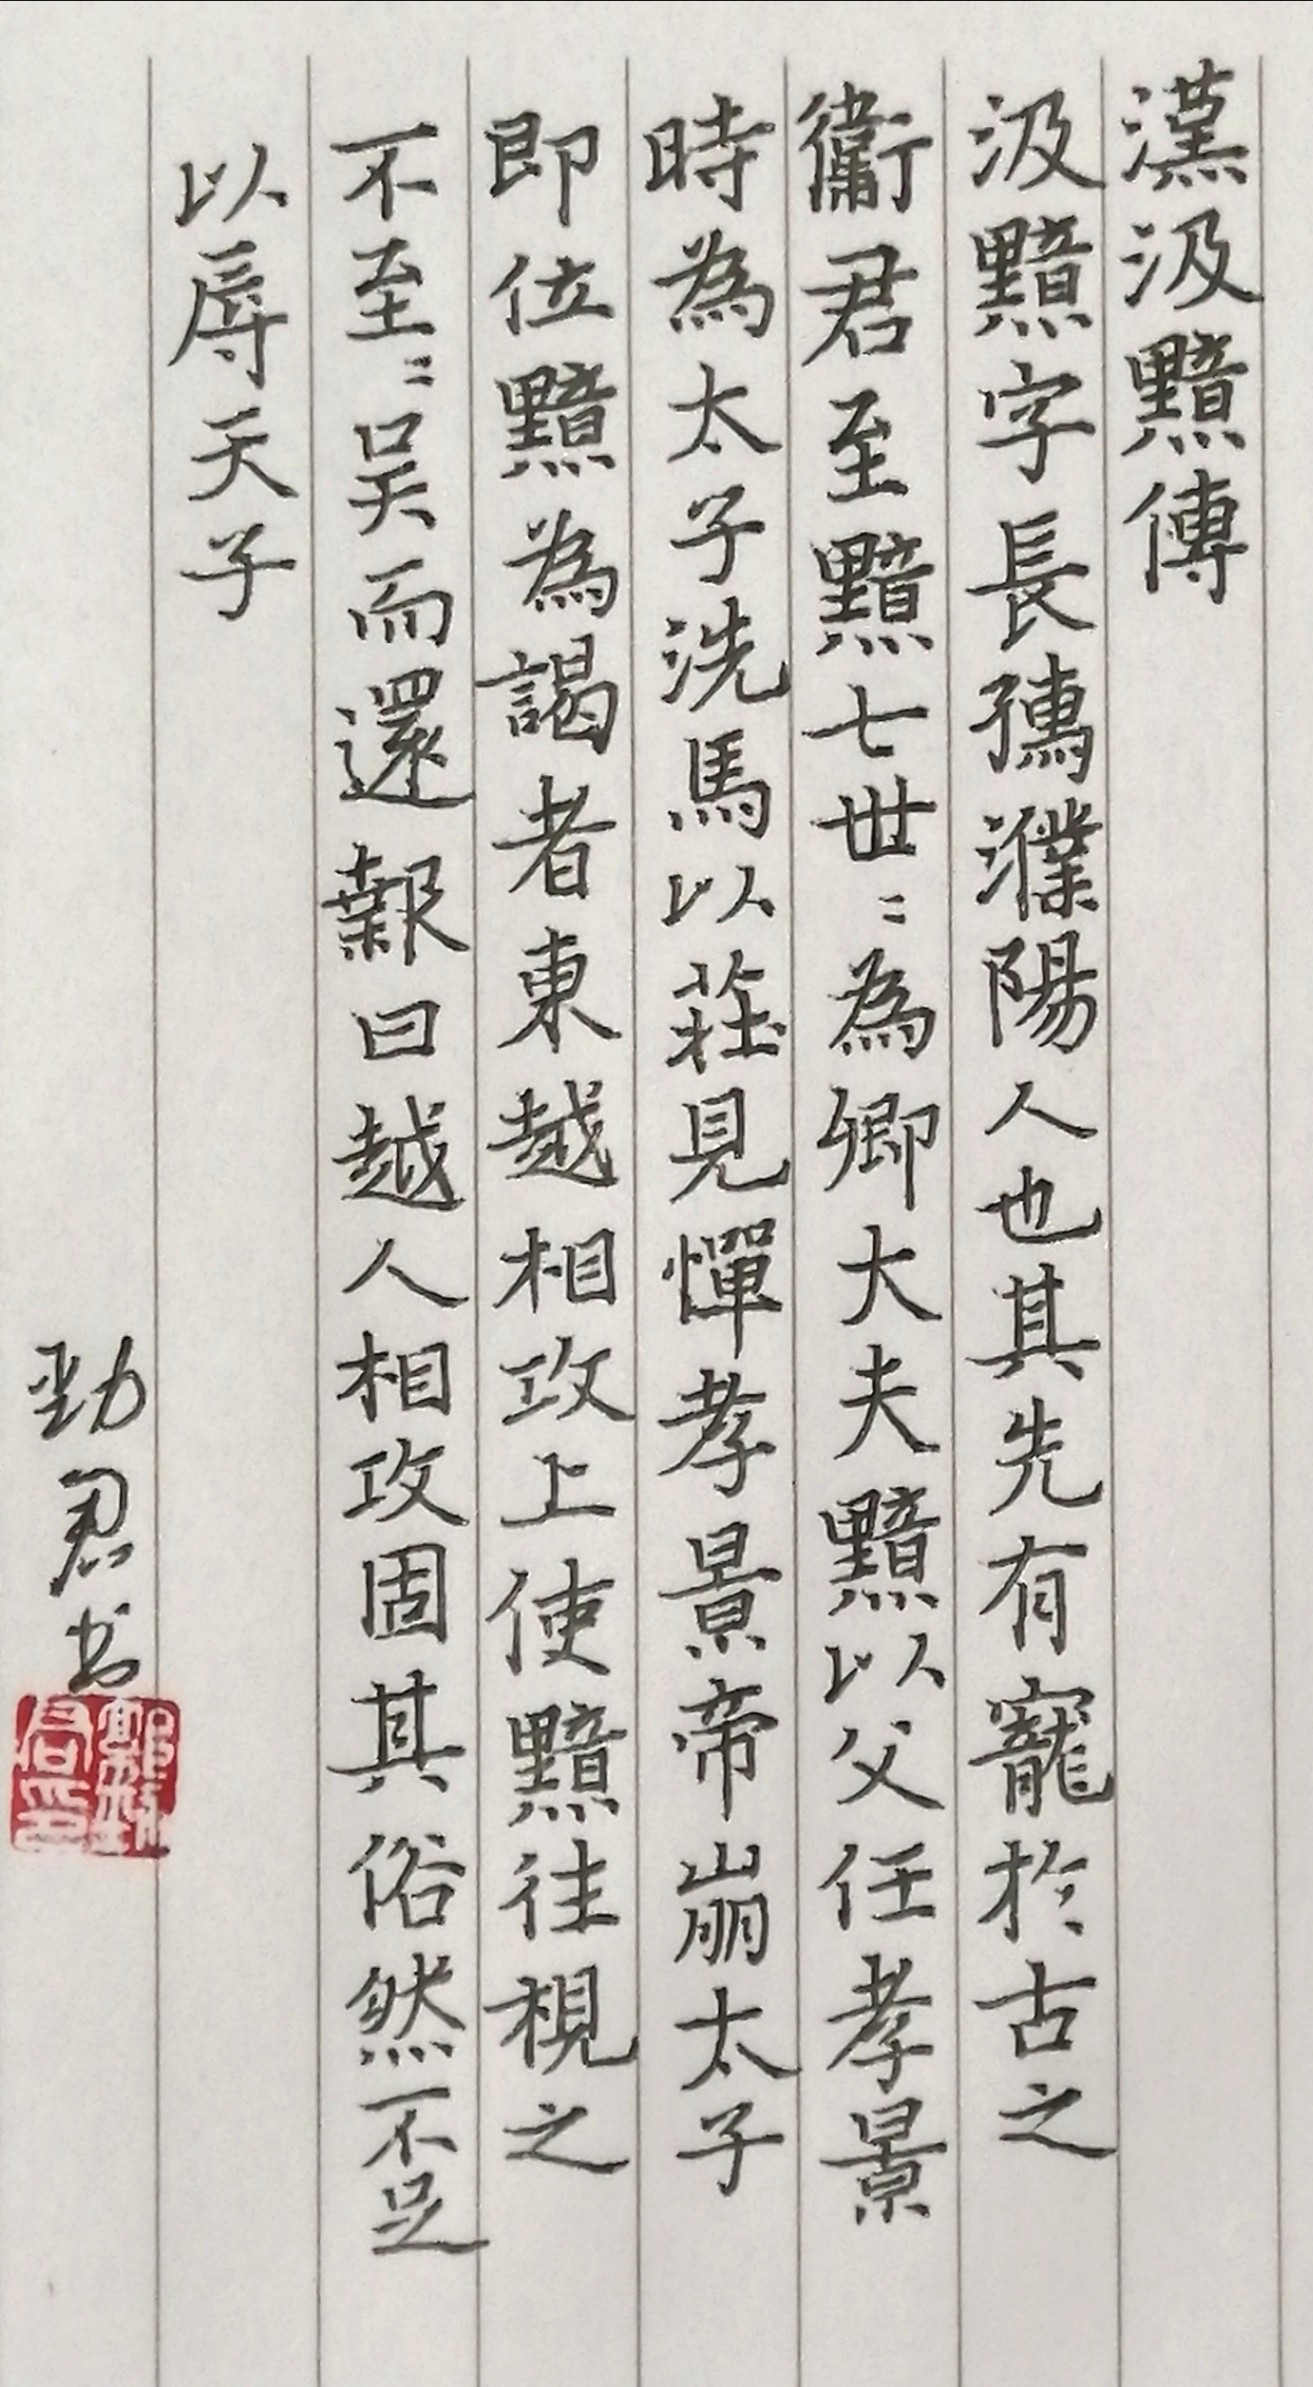 漢汲黯傳
汲黯字長孺濮陽人也其先有寵於古之
衞君至黯七世〻為卿大夫黯以父任孝景
時為太子洗馬以莊見憚孝景帝崩太子
即位黯為謁者東越相攻上使黯往視之
不至〻吴而還報曰越人相攻固其俗然不足
以辱天子
勁君书